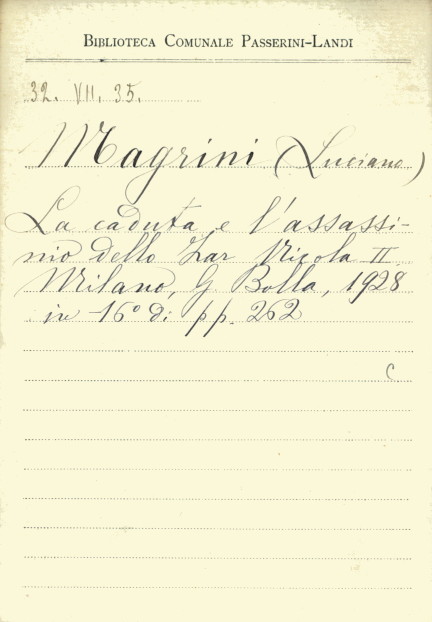 BIBLIOTECA COMUNALE PASSERINI-LANDI
32. VII. 35.
Magrini (Luciano)
La caduta e l'assassi-
nio dello Zar Nicola II
Milano, G. Bolla, 1928
in -16° di pp. 262
C.